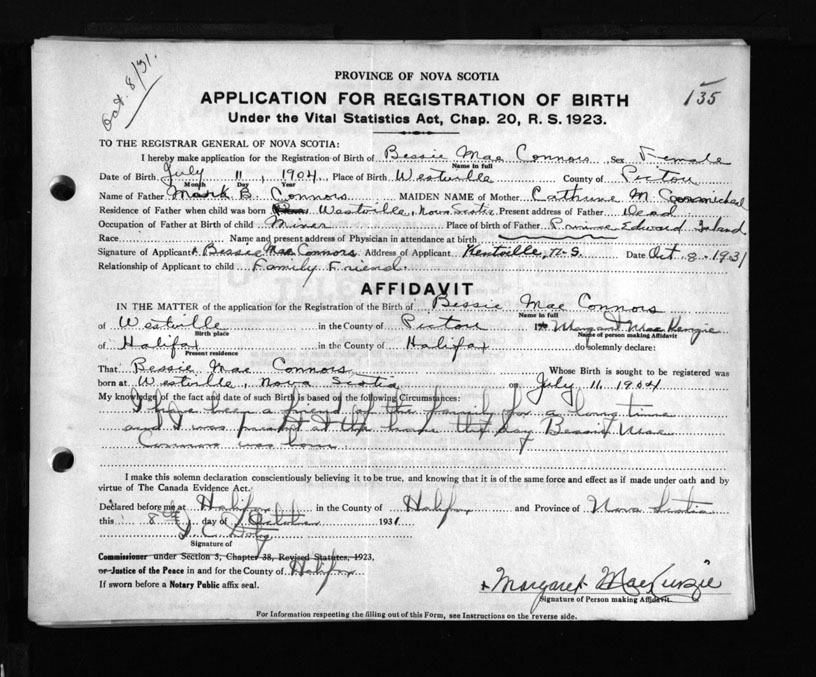 Oct. 8/31.
135
PROVINCE OF NOVA SCOTIA
APPLICATION FOR REGISTRATION OF BIRTH
Under the Vital Statistics Act, Chap. 20, R. S. 1923.
TO THE REGISTRAR GENERAL OF NOVA SCOTIA:
I hereby make application for the Registration of Birth of Bessie Mae Connors Sex Female
Name in full
Date of Birth July 11, 1904 Place of Birth Westville County of Pictou
Month Day Year
Name of Father Mark B. Connors MAIDEN NAME of Mother Catherine M.
Residence of Father when child was born Westville, Nova Scotia Present address of Father Dead
Occupation of Father at Birth of child Miner Place of birth of Father Prince Edward Island
Race Name and present address of Physician in attendance at birth
Signature of Applicant Bessie Mae Connors Address of Applicant Kentville, N.S. Date Oct 8 1931
Relationship of Applicant to child Family Friend.
AFFIDAVIT
IN THE MATTER of the application for the Registration of the Birth of Bessie Mae Connors
Name in full
of Westville in the County of Pictou I, Margaret MacKenzie
Birth place Name of person making Affidavit
of Halifax in the County of Halifax do solemnly declare:
Present residence
That Bessie Mae Connors Whose Birth is sought to be registered was
born at Westville, Nova Scotia on July 11 1904
My knowledge of the fact and date of such Birth is based on the following Circumstances:
I have been a friend of the family for a long time
and I was present at the home the day Bessie Mae
Connors was born.
I make this solemn declaration conscientiously believing it to be true, and knowing that it is of the same force and effect as if made under oath and by
virtue of The Canada Evidence Act.
Declared before me at Halifax in the County of Halifax and Province of Nova Scotia
this 8th day of October 1931
Signature of
Commissioner under Section 3, Chapter 38, Revised Statutes, 1923,
or Justice of the Peace in and for the County of Halifax
If sworn before a Notary Public affix seal.
Margaret MacKenzie
Signature of Person making Affidavit.
For Information respecting the filling out of this Form, see Instructions on the reverse side.